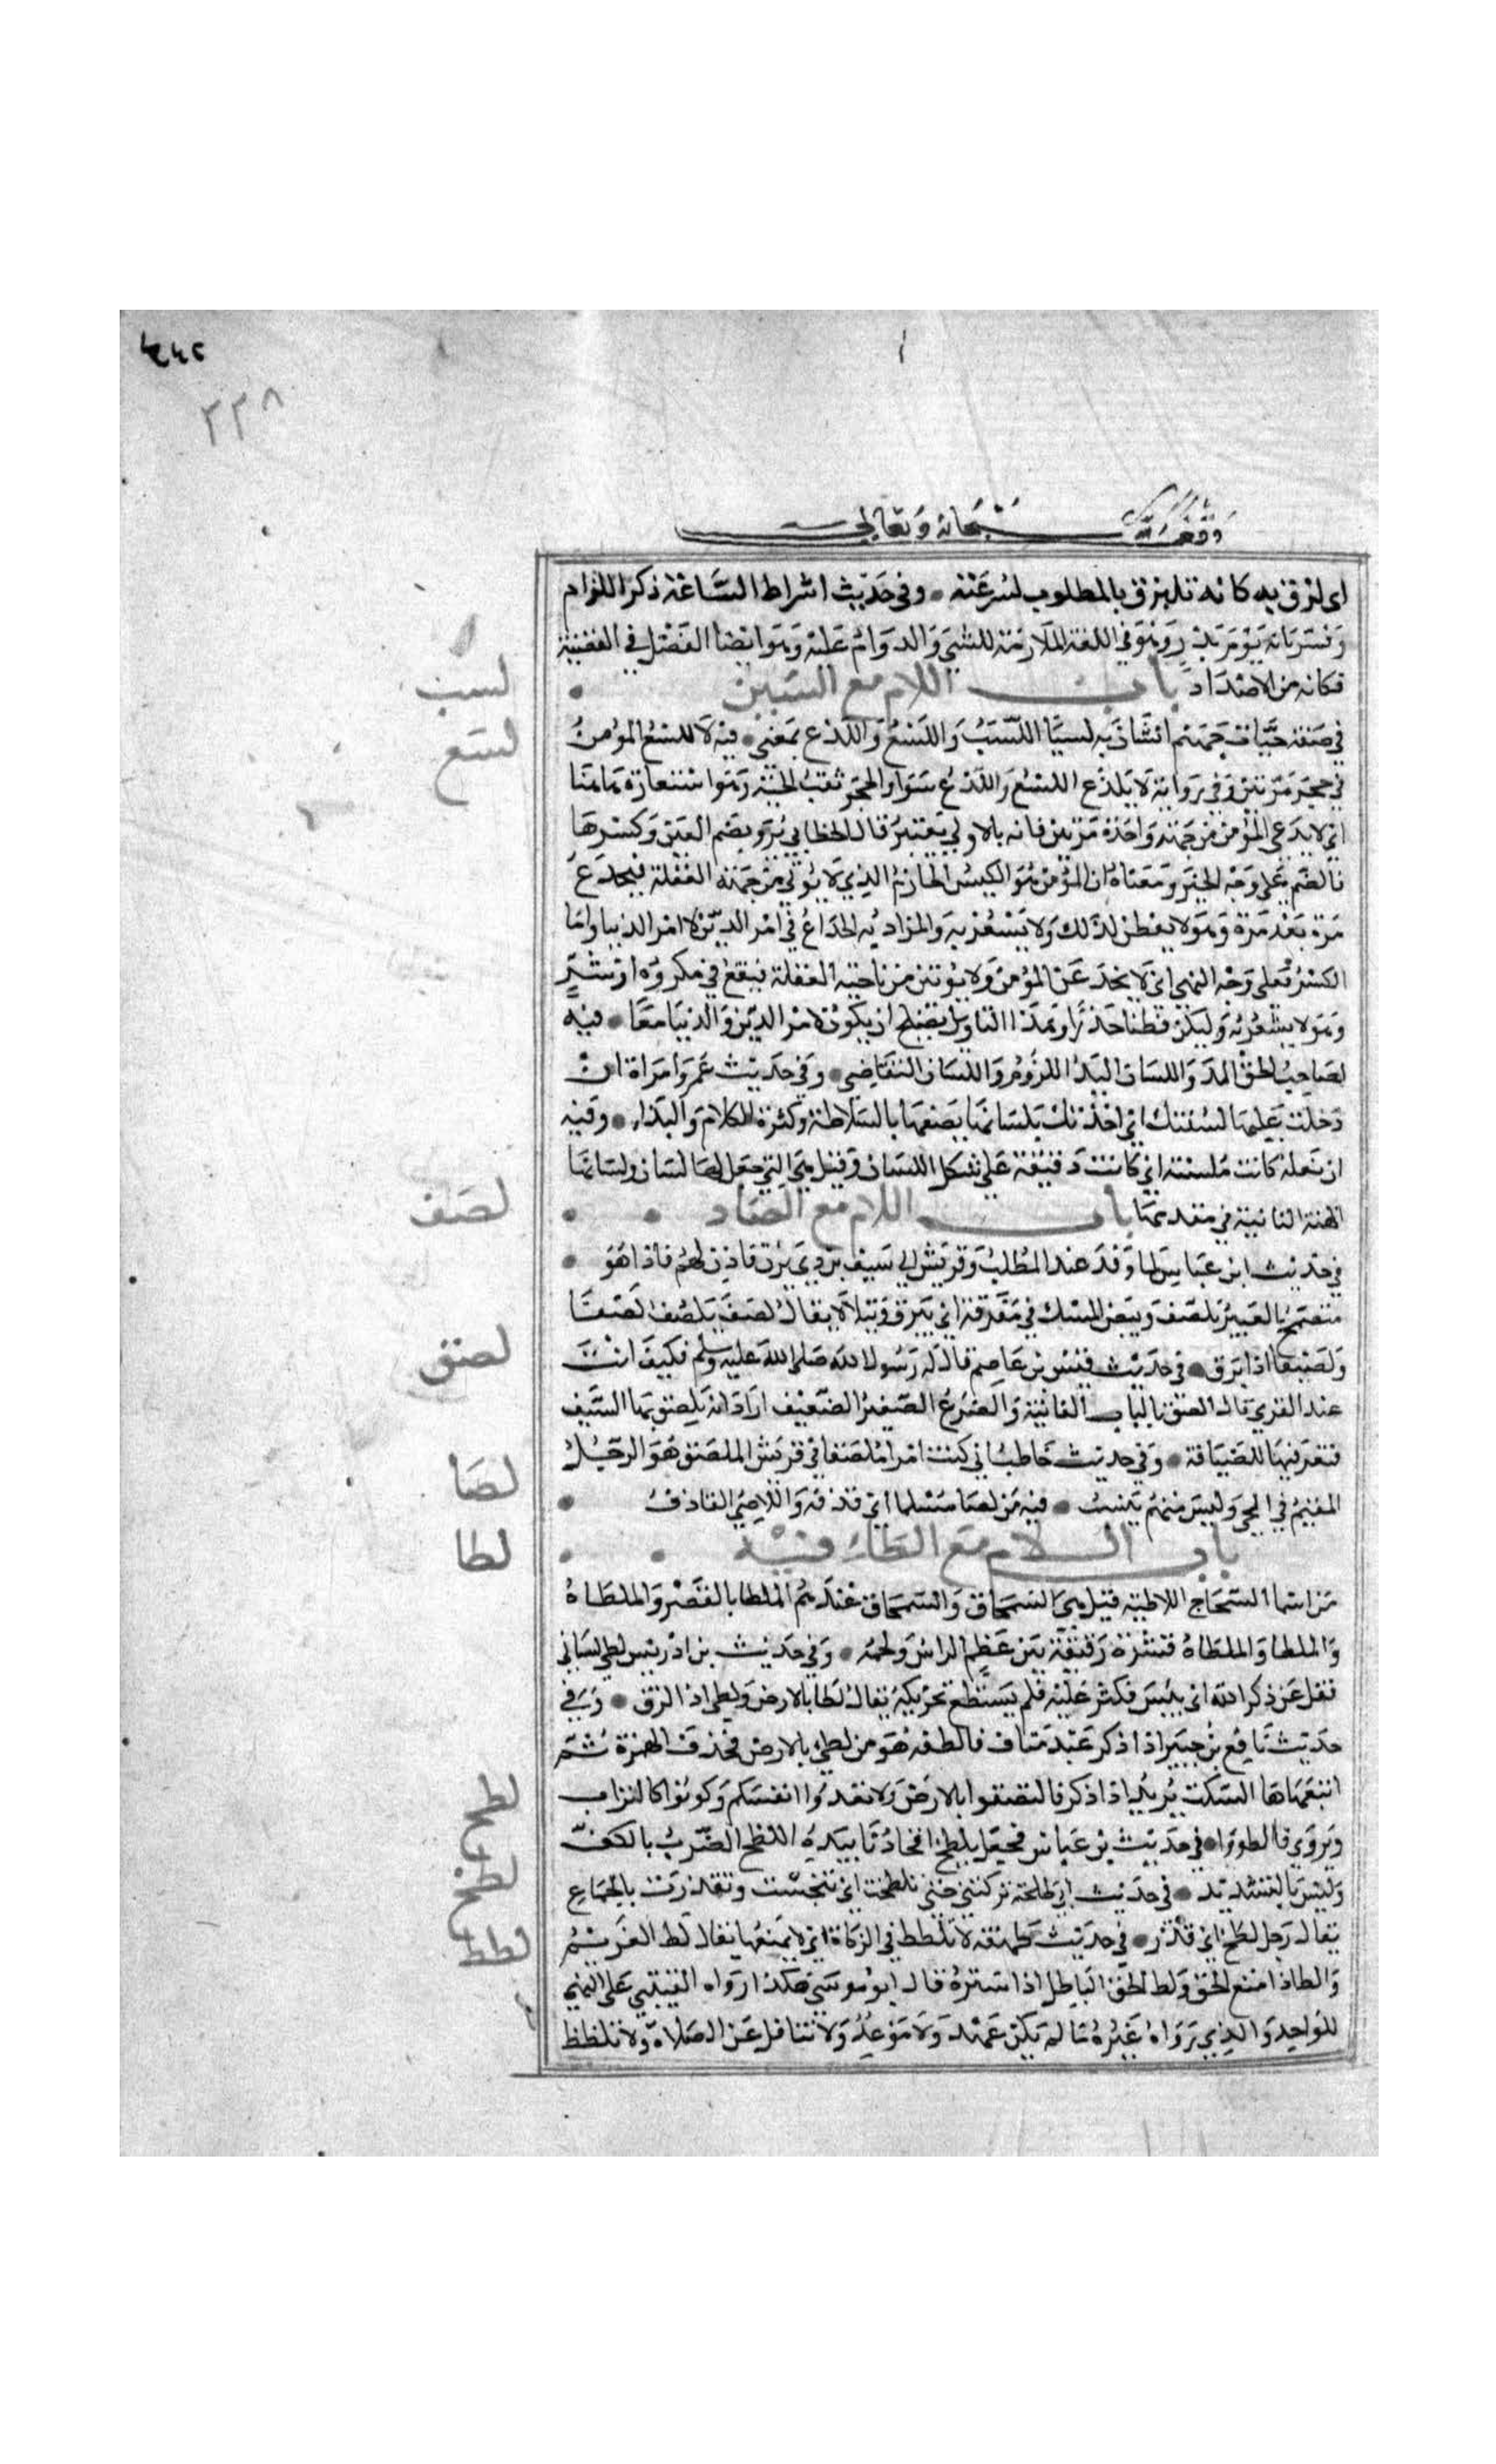 ٢٢٨
وقف لله سبحانه وتعالى
اى لزق به كانه تلتزق بالمطلوب لسرعته • وفى حديث اشراط الساعة ذكر اللزام
وفسر بانه يوم بدر وهو فى اللغة الملازمة للشىء والدوام عليه وهو ايضا الفصل فى القضية
فكانه من الاضداد باب اللام مع السين •
لسب
فى صفة حيات جهنم انشان به لسبا اللسب واللسع واللدغ بمعنى • فيه لا يلسع المؤمن
لسع
فى جحر مرتين وفى رواية لا يلدغ اللسع واللدغ سوا والجحر ثقب الحية وهو استعارة هاهنا
اى لا يدهى المؤمن من جهة واحدة مرتين فانه بالاولى يعتبر قال الخطابى يروى بضم العين وكسرها
فالضم على وجه الخبر ومعناه ان المؤمن هو الكيس الحازم الذى لا يؤتى من جهة الغفلة فيخدع
مرة بعد مرة وهو لا يفطن لذلك ولا يشعر به والمراد به الخداع فى امر الدين لا امر الدنيا واما
الكسر فعلى وجه النهى اى لا يخدعن المؤمن ولا يوتين من ناحية الغفلة فيقع فى مكروه او شر
وهو لا يشعر به وليكن فطنا حذرا وهذا التاويل يصلح ان يكون لامر الدين والدنيا معا • فيه
لصاحب الحق اليد واللسان اليد اللزوم واللسان التقاضى • وفى حديث عمر وامراة ان
دخلت عليها لسنتك اى اخذتك بلسانها يصفها بالسلاطة وكثرة الكلام والبذاء • وفيه
ان نعله كانت ملسنة اى كانت دقيقة على شكل اللسان وقيل هى التى جعل لها لسان ولسانها
الهنة الناتية فى مقدمها باب اللام مع الصاد • •
لصف
فى حديث ابن عباس لما وفد عبد المطلب وقريش الى سيف بن ذى يزن فاذن لهم فاذا هو •
متضمخ بالعبير يلصف وبيض المسك فى مفرقه اى يبرق ويتلالا يقال لصف يلصف لصفا
ولصيفا اذا برق • فى حديث قيس بن عاصم قال له رسول الله صلى الله عليه وسلم فكيف انت
لصق
عند القرى قال الصق بالناب الفانية والضرع الصغير الضعيف اراد انه يلصق بها السيف
فيعرقبها للضيافة • وفى حديث حاطب انى كنت امرا ملصقا فى قريش الملصق هو الرجل
لصا
المقيم فى الحى وليس منهم بنسب • فيه من لصا مسلما اى قذفه واللاصى القاذف •
باب اللام مع الطاء فيه • •
لطا
من اسما الشجاج اللاطية قيل هى السمحاق والسمحاق عندهم الملطا بالقصر والملطاة
والملطا والملطاة قشرة رقيقة بين عظم الراس ولحمه • وفى حديث بن ادريس لطى لسانى
فقل عن ذكر الله اى يبس فكثر عليه فلم يستطع تحريكه يقال لطا بالارض ولطى اذا لزق • وفى
حديث نافع بن جبير اذا ذكر عبد مناف فالطه هو من لطى بالارض فحذف الهمزة ثم
اتبعها ها السكت يريد اذا ذكر فالتصقوا بالارض ولا تعدوا انفسكم وكونوا كالتراب
لطح
ويروى فالطووا • فى حديث بن عباس فجعل يلطح افخاذنا بيده اللطح الضرب بالكف
وليس بالشديد • فى حديث ابى طلحة تركتنى حتى تلطخت اى تنجست وتقذرت بالجماع
لطخ
يقال رجل لطخ اى قذر • فى حديث طهفة لا تلطط فى الزكاة اى لا تمنعها يقال لط الغريم
لطط
والط اذا منع الحق ولط الحق بالباطل اذا ستره قال ابو موسى هكذا رواه القتيبى على النهى
للواحد والذى رواه غيره ما لم يكن عهد ولا موعد ولا تثاقل عن الصلاة ولا تلطط